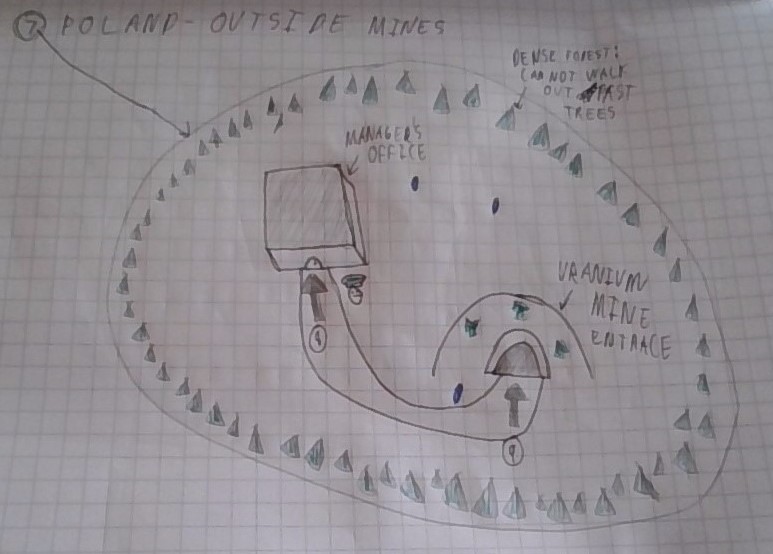 7 POLAND - OUTSIDE MINES
DENSE FOREST:
CAN NOT WALK
OUT PAST
TREES
MANAGER'S
OFFICE
URANIUM
MINE
ENTRACE
8
9